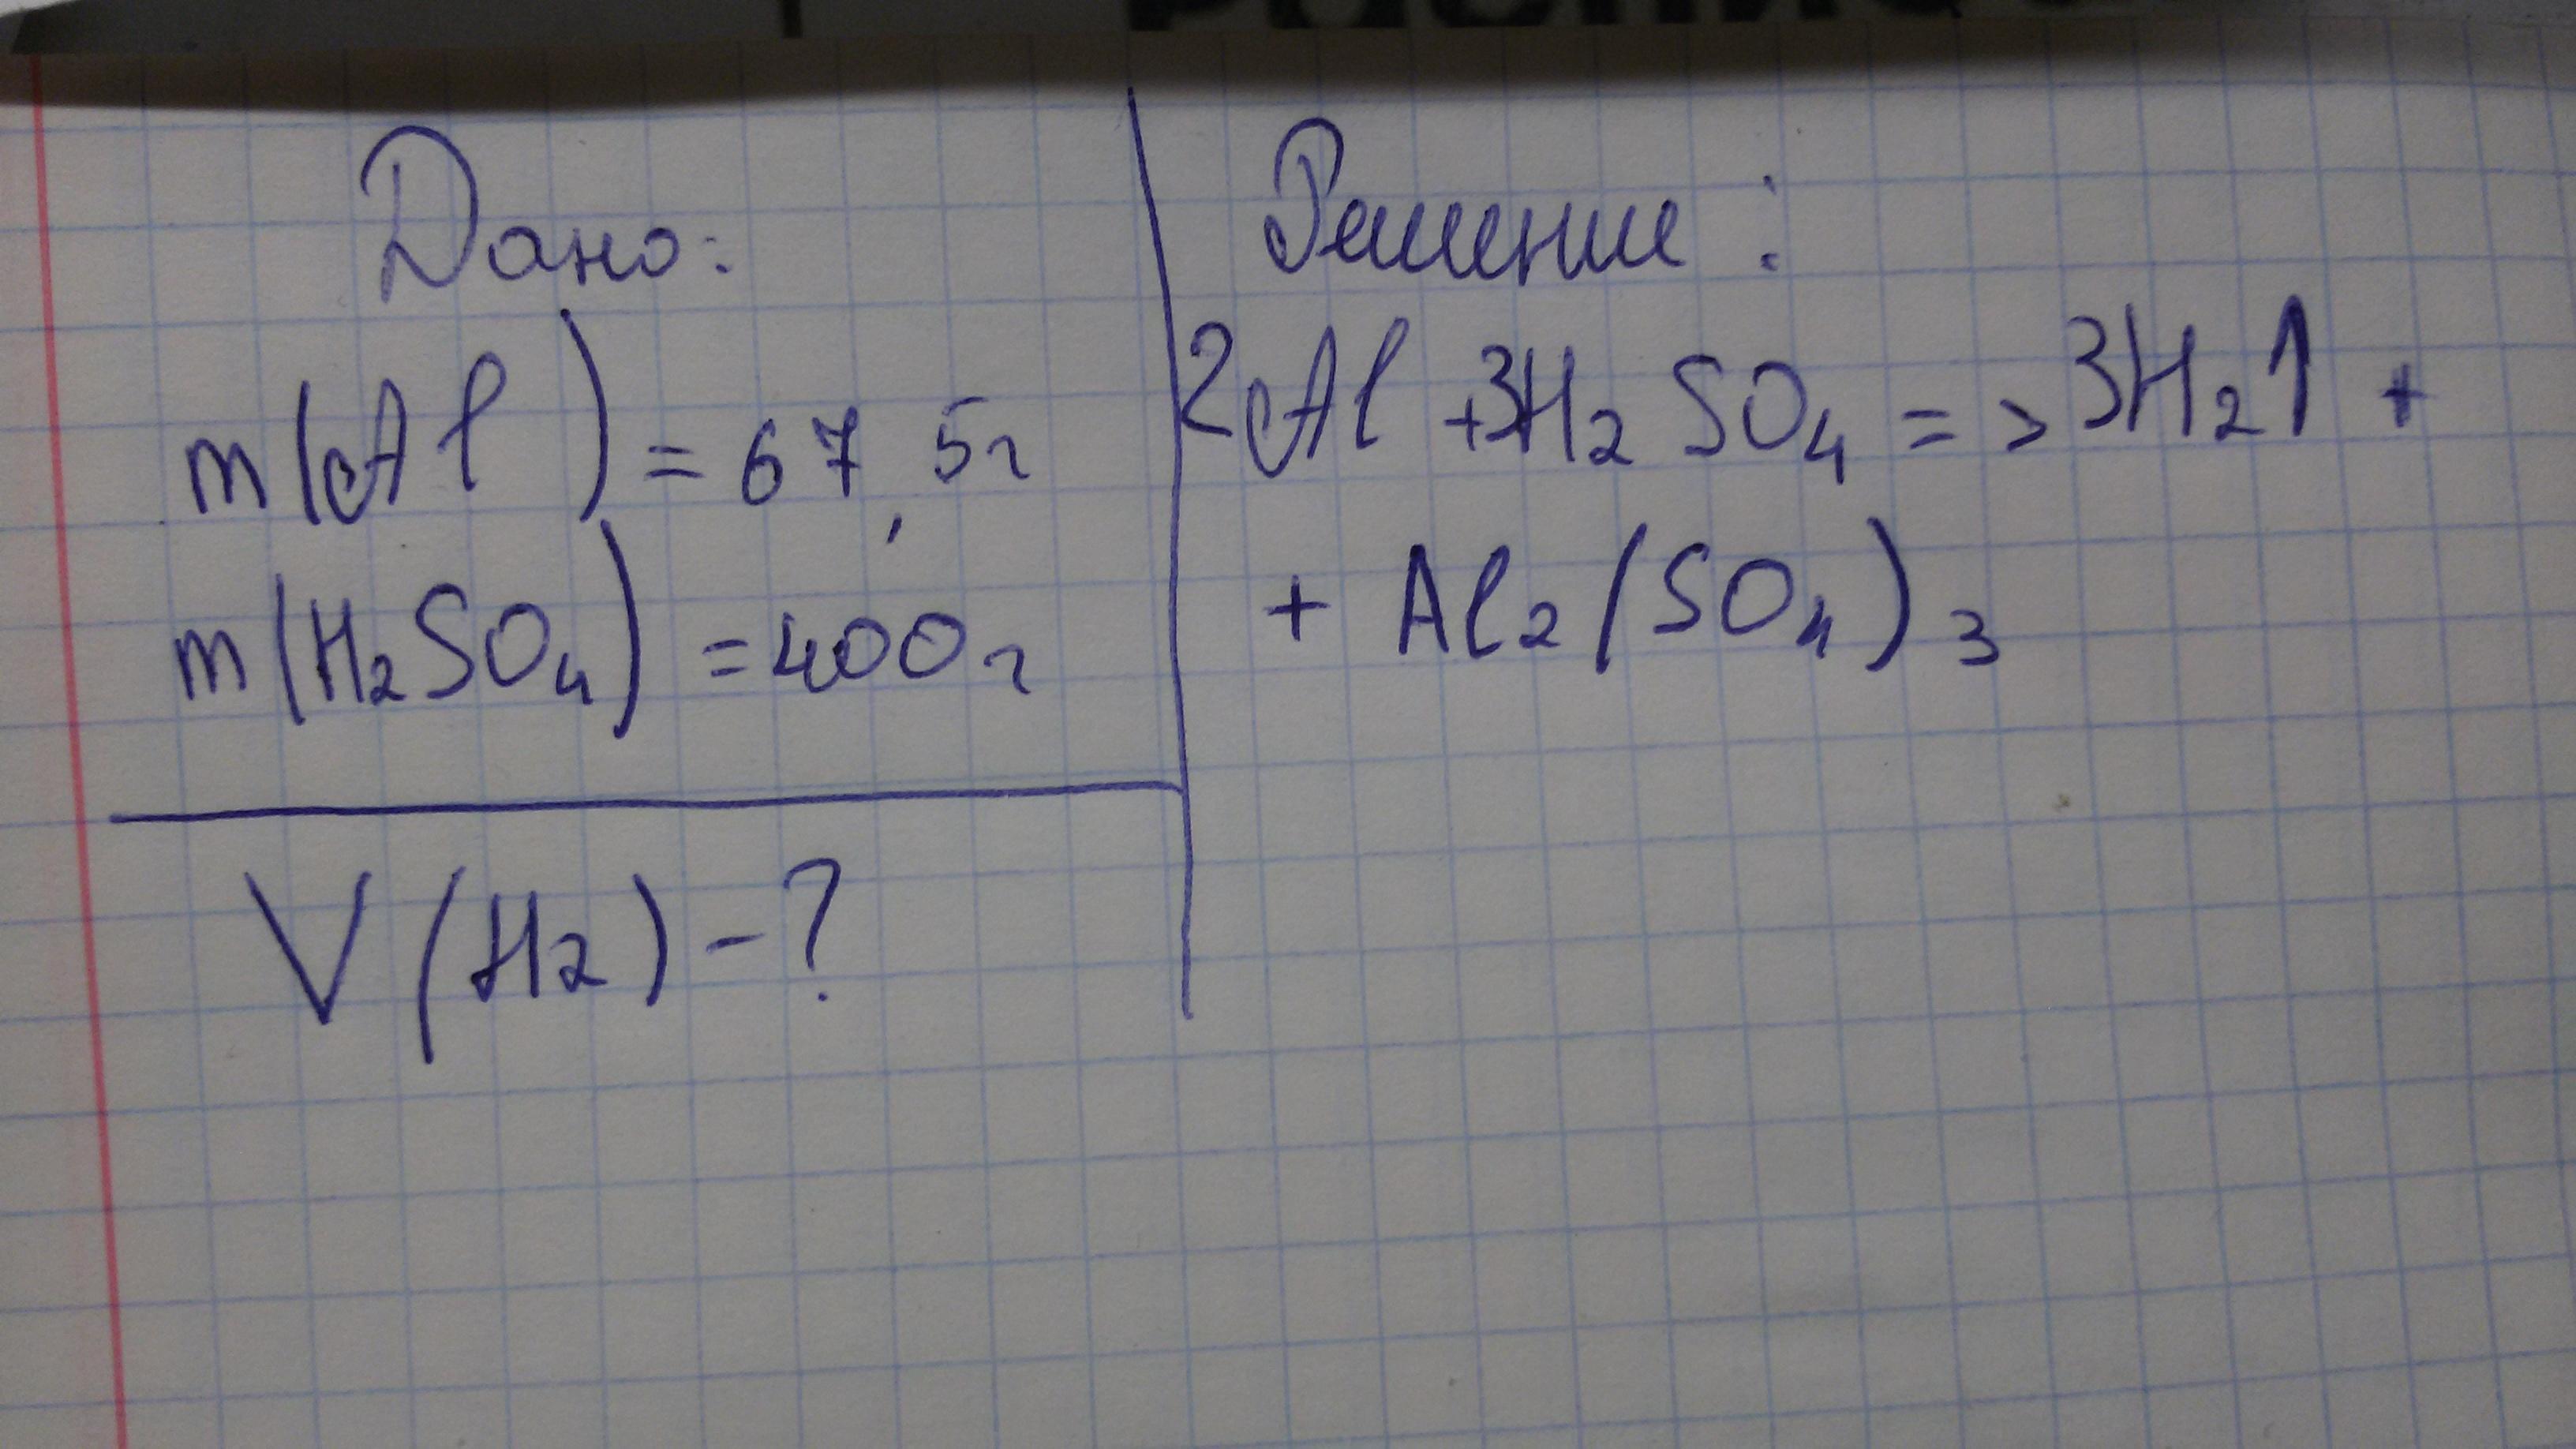 Дано:
m(Al) = 67,5г
m(H₂SO₄) = 400г
V(H₂) - ?
Решение:
2Al + 3H₂SO₄ => 3H₂↑ +
+ Al₂(SO₄)₃